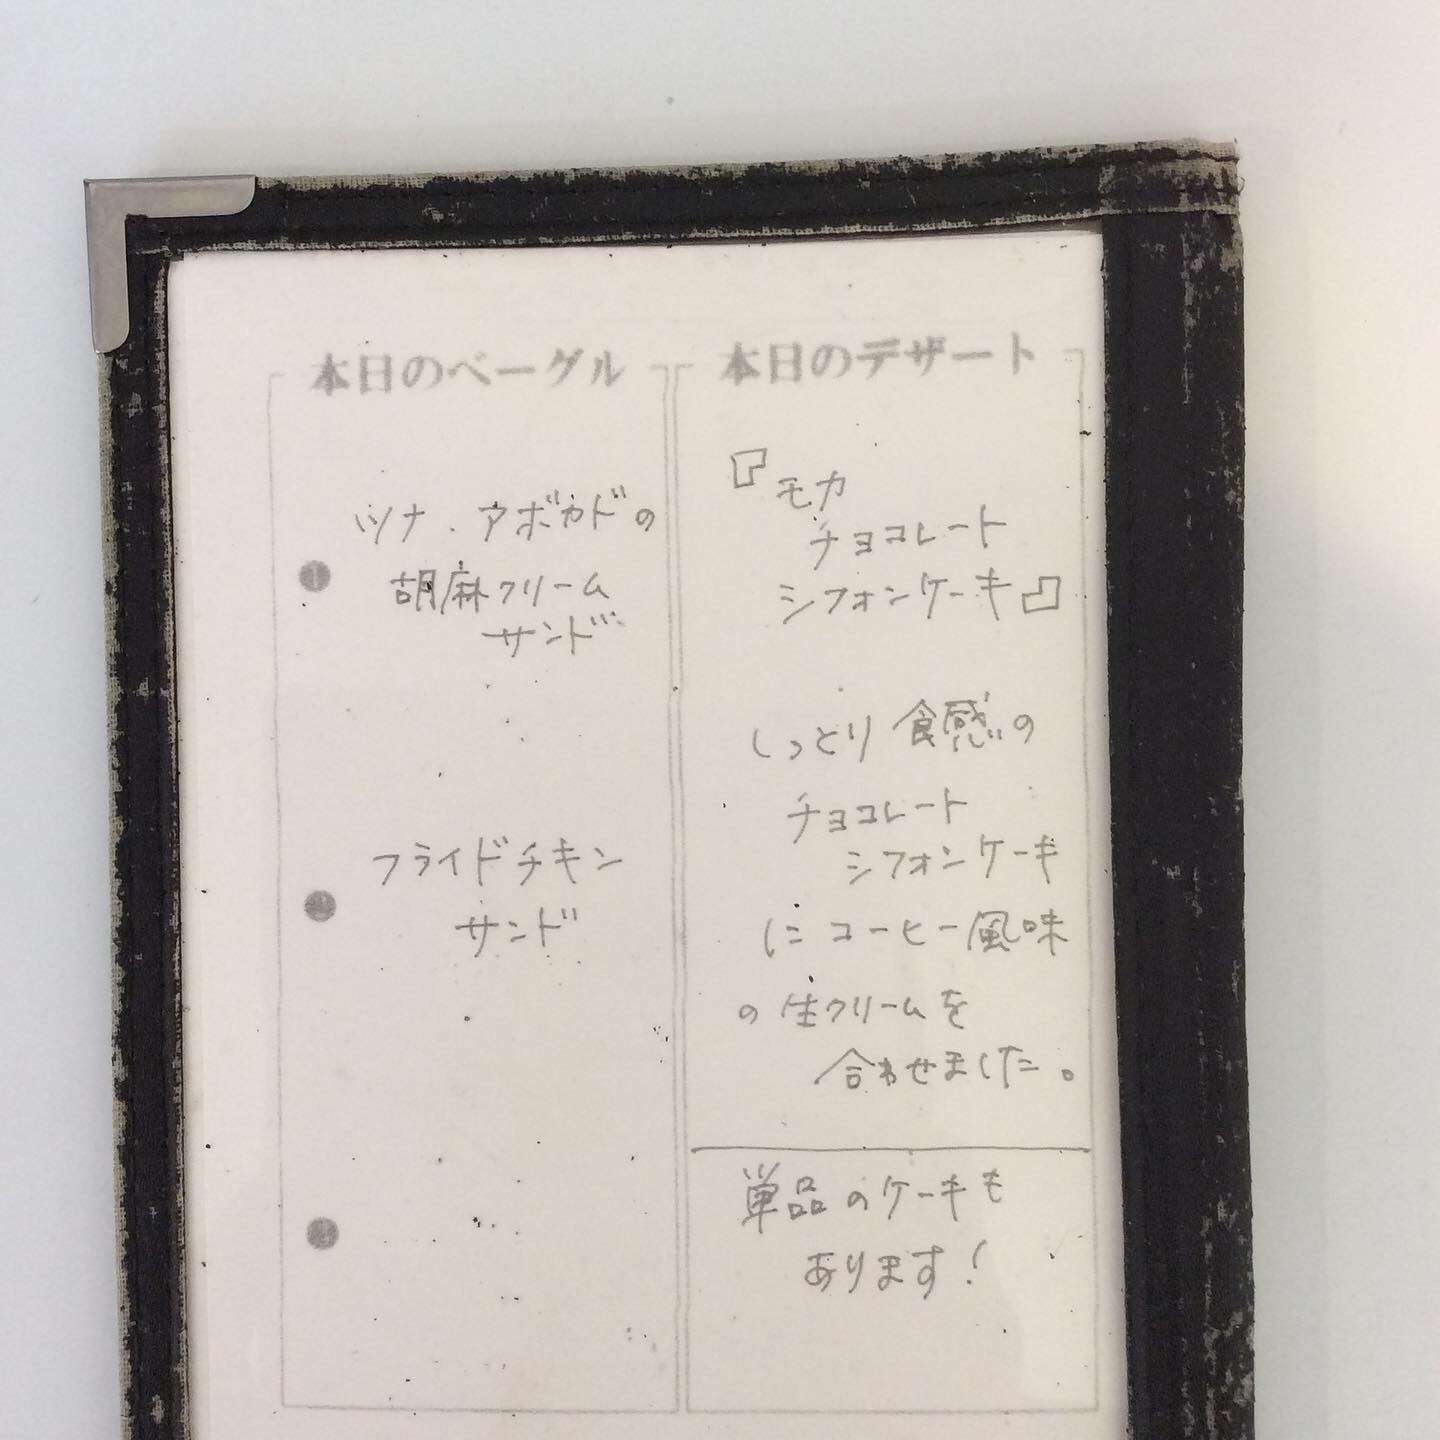 本日のベーグル
ツナ・アボカドの
胡麻クリーム
サンド
フライドチキン
サンド
本日のデザート
『モカ
チョコレート
シフォンケーキ』
しっとり食感の
チョコレート
シフォンケーキ
にコーヒー風味
の生クリームを
合わせました。
単品のケーキも
あります!